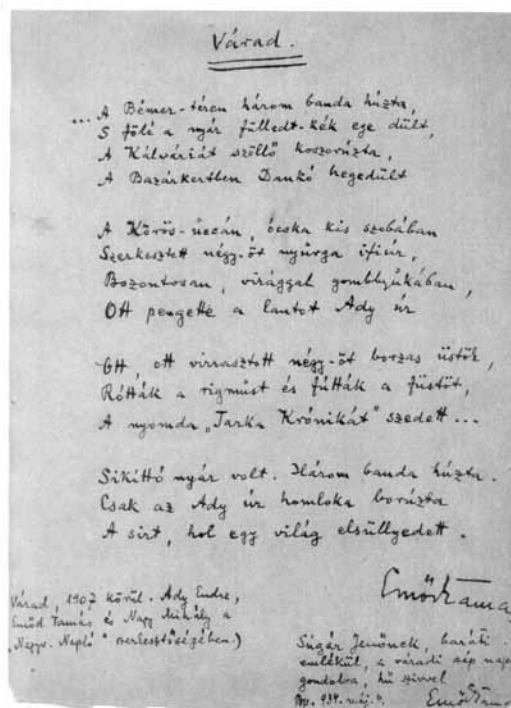 Várad.
...A Bémer-téren három banda húzta,
S fölé a nyár fülledt-kék ege dült,
A Kálváriát szöllő koszorúzta,
A Bazárkertben Dankó hegedült
A Körös-uccán, ócska kis szobában
Szerkesztett négy-öt nyurga ifiúr,
Bozontosan, virággal gomblyukában,
Ott pengette a lantot Ady úr
Ott, ott virrasztott négy-öt borzas üstök,
Rótták a rigmust és fútták a füstöt,
A nyomda „Tarka Krónikát" szedett...
Sikittó nyár volt. Három banda húzta.
Csak az Ady úr homloka borúzta
A sirt, hol egy világ elsüllyedett.
Emőd Tamás
Várad, 1907 körül. Ady Endre,
Emőd Tamás és Nagy Mihály a
„Nagyv. Napló" szerkesztőségében.)
Súgár Jenőnek, baráti
emlékül, a váradi szép napok
gondolva, hű szivvel
Bp. 934. máj. 4.
Emőd Tamás